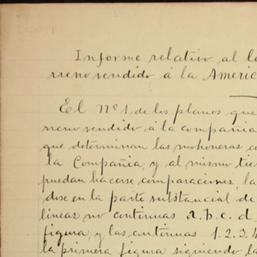 Informe relativo al l
rreno vendido á la Ameri
El Nº 1, de los planos que
rreno vendido á la compañia
que determinan las mohoneras c
la Compañia y al mismo tie
puedan hacerse comparaciones, la
dose en la parte substancial de
linear no continuas a. b. c. d
figura y las continuas 1. 2. 3. 4
la primera figura siguiendo la